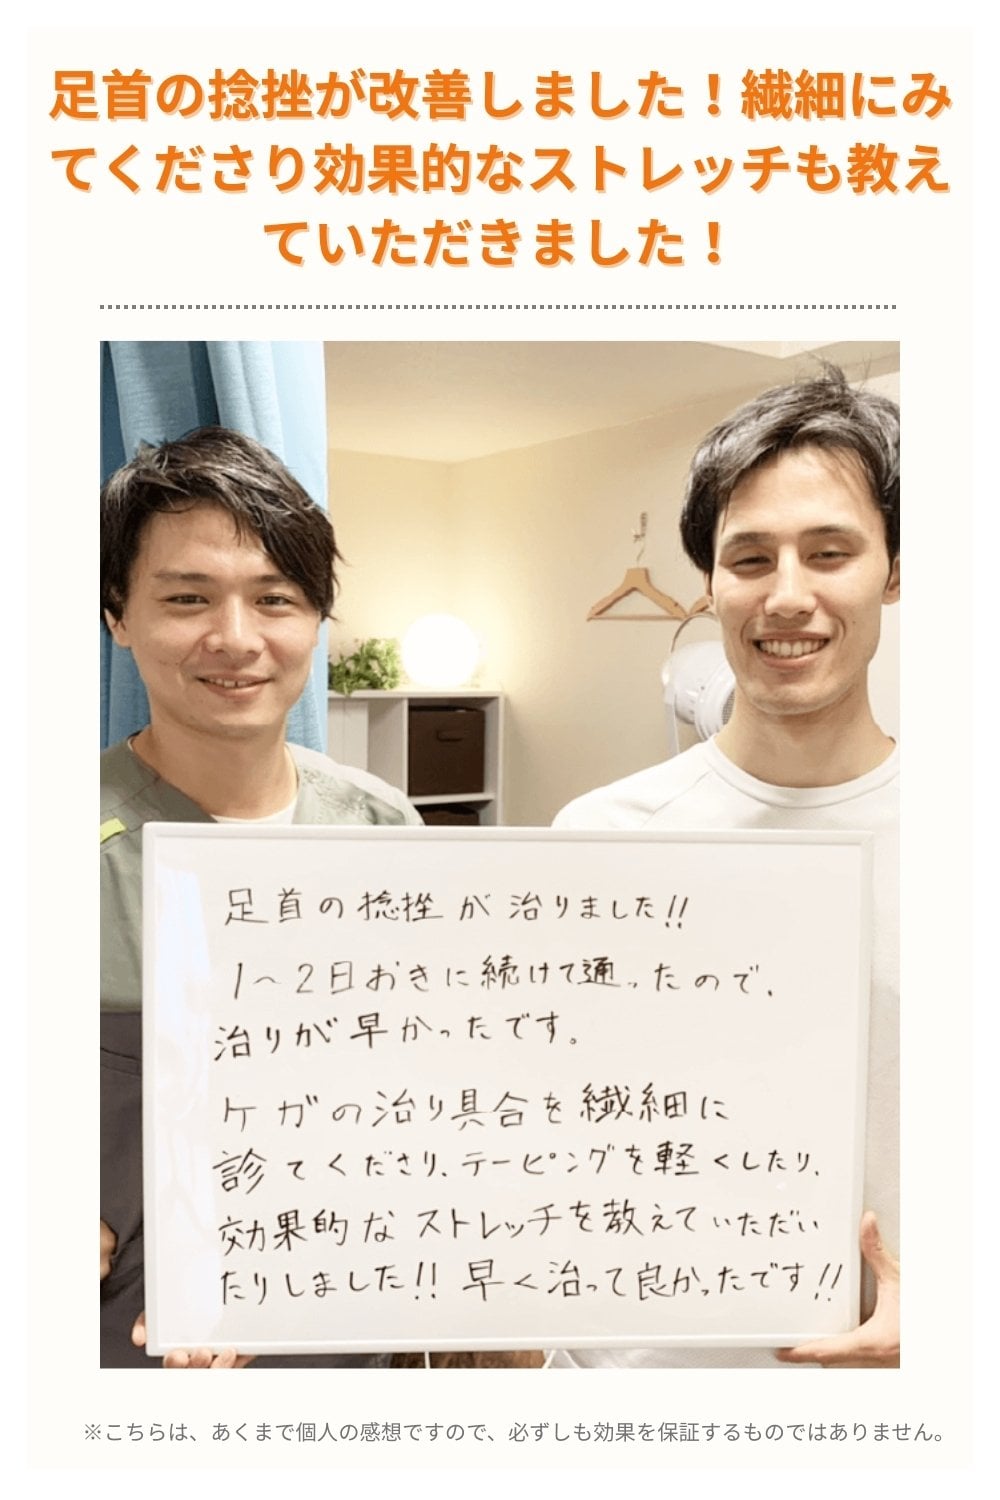 足首の捻挫が改善しました！繊細にみ
てくださり効果的なストレッチも教え
ていただきました！
足首の捻挫が治りました!!
1〜2日おきに続けて通ったので、
治りが早かったです。
ケガの治り具合を繊細に
診てくださり、テーピングを軽くしたり、
効果的なストレッチを教えていただい
たりしました!! 早く治って良かったです!!
※こちらは、あくまで個人の感想ですので、必ずしも効果を保証するものではありません。